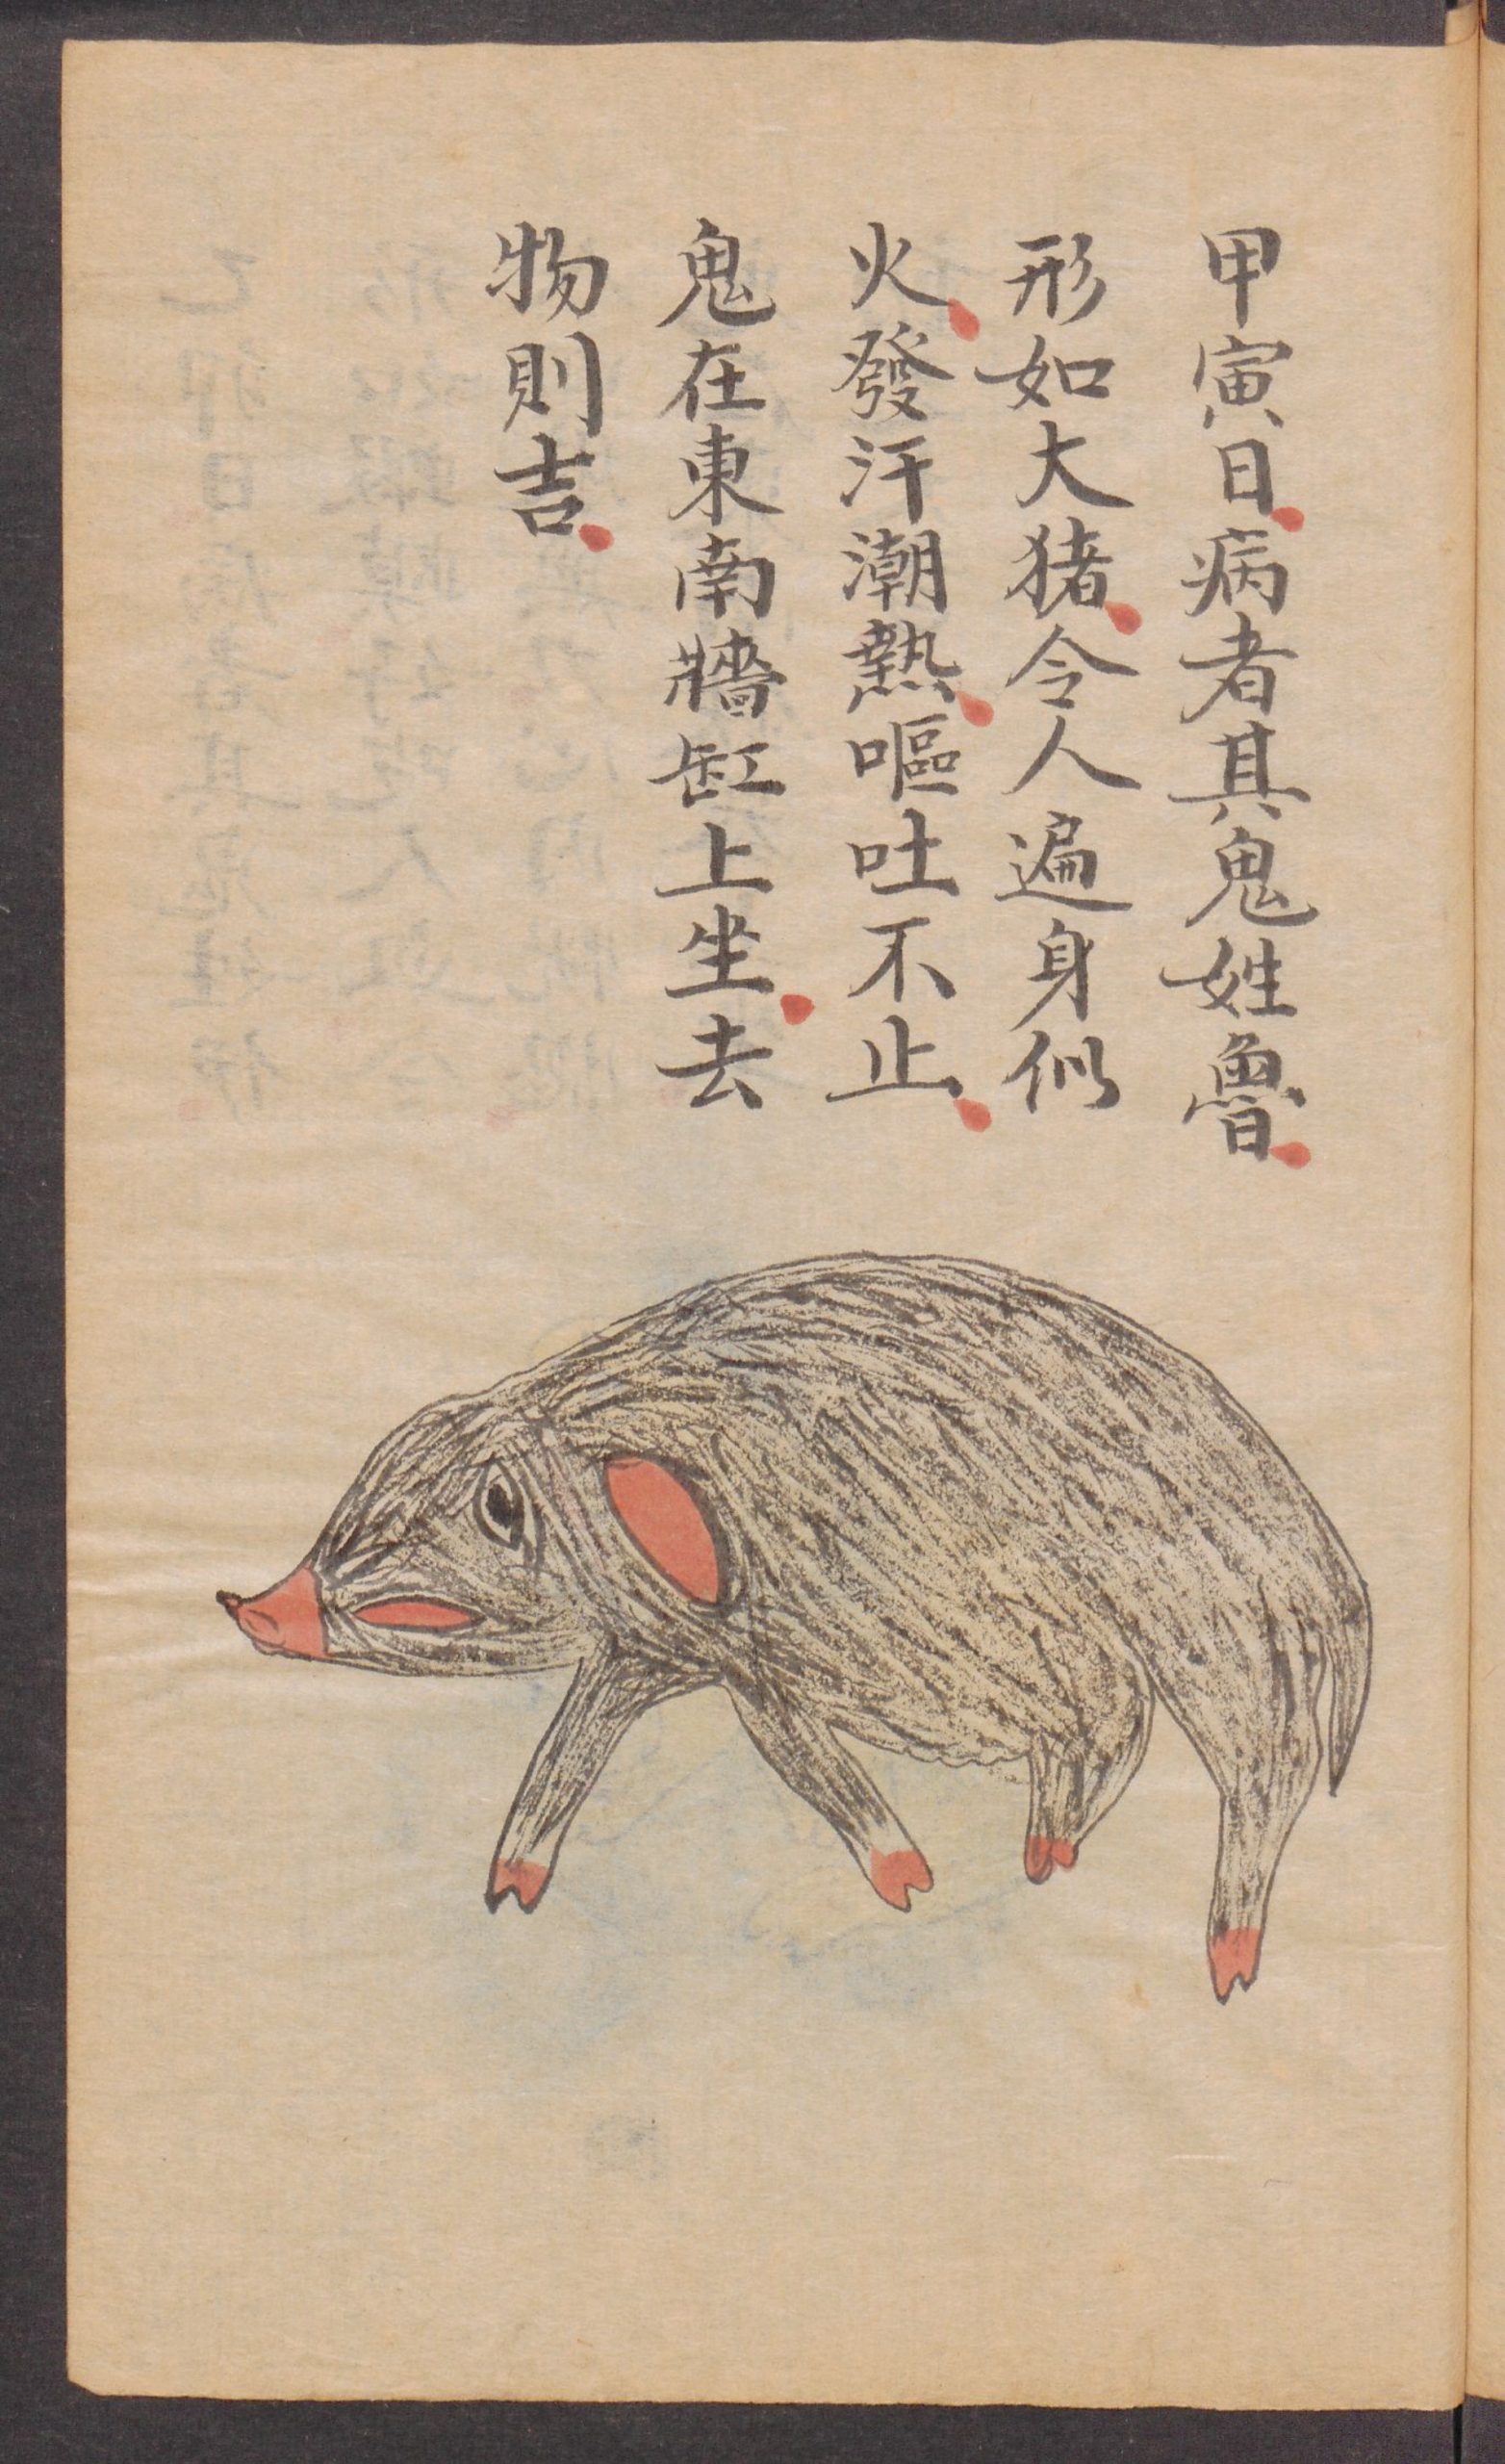 甲寅日病者其鬼姓魯
形如大猪令人遍身似
火發汗潮熱嘔吐不止
鬼在東南牆缸上坐去
物則吉